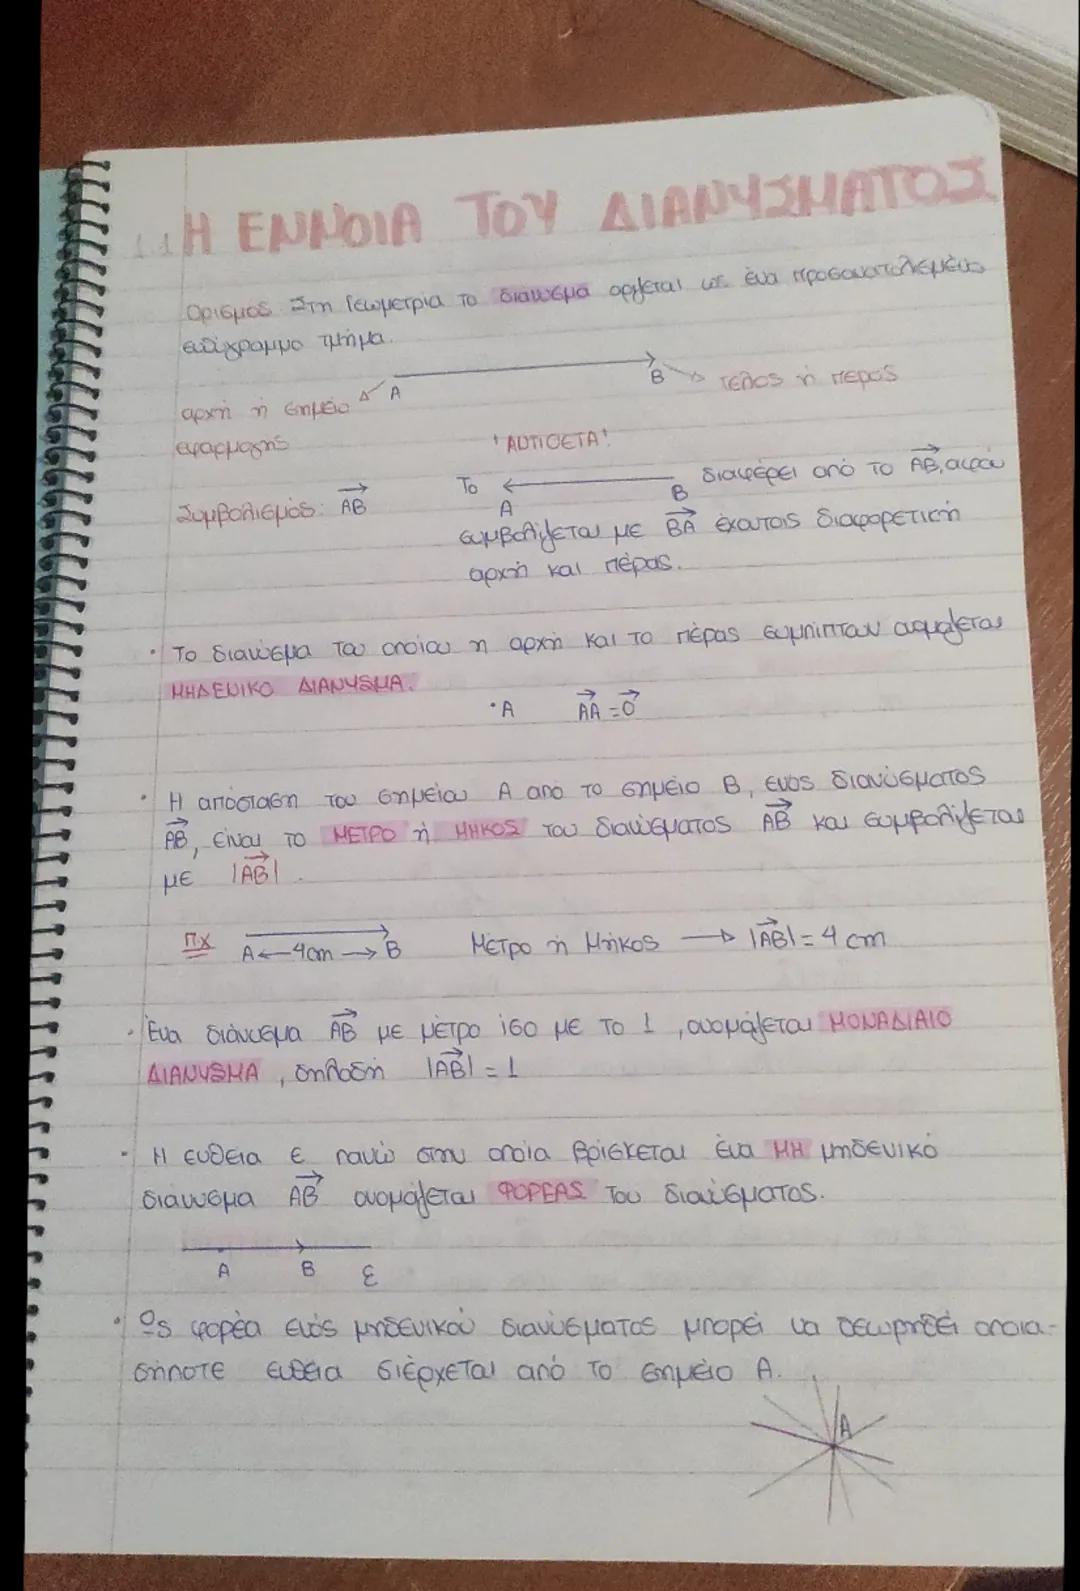 1.1 Η ΕΝΝΟΙΑ ΤΟΥ ΔΙΑΝΥΣΜΑΤΟΣ
Ορισμός: Στη Γεωμετρία το διάνυσμα ορίζεται ως ένα προσανατολισμένο
ευθύγραμμο τμήμα.
A B τέλος ή πέρας
αρχή ή σημείο
εφαρμογής
'ΑΝΤΙΘΕΤΑ'
Το A B διαφέρει από το AB, αφού
Συμβολισμός: AB
συμβολίζεται με BA έχοντας διαφορετική
αρχή και πέρας.
· Το διάνυσμα του οποίου η αρχή και το πέρας συμπίπτουν ονομάζεται
ΜΗΔΕΝΙΚΟ ΔΙΑΝΥΣΜΑ.
·A AA = 0
· Η απόσταση του σημείου A από το σημείο B, ενός διανύσματος
AB, είναι το ΜΕΤΡΟ ή ΜΗΚΟΣ του διανύσματος AB και συμβολίζεται
με |AB|.
πχ A ← 4cm → B Μέτρο ή Μήκος → |AB| = 4 cm
· Ένα διάνυσμα AB με μέτρο ίσο με το 1, ονομάζεται ΜΟΝΑΔΙΑΙΟ
ΔΙΑΝΥΣΜΑ, δηλαδή |AB| = 1
· Η ευθεία ε πάνω στην οποία βρίσκεται ένα ΜΗ μηδενικό
διάνυσμα AB ονομάζεται ΦΟΡΕΑΣ του διανύσματος.
A B ε
· Ως φορέα ενός μηδενικού διανύσματος μπορεί να θεωρηθεί οποια-
δήποτε ευθεία διέρχεται από το σημείο A.
A